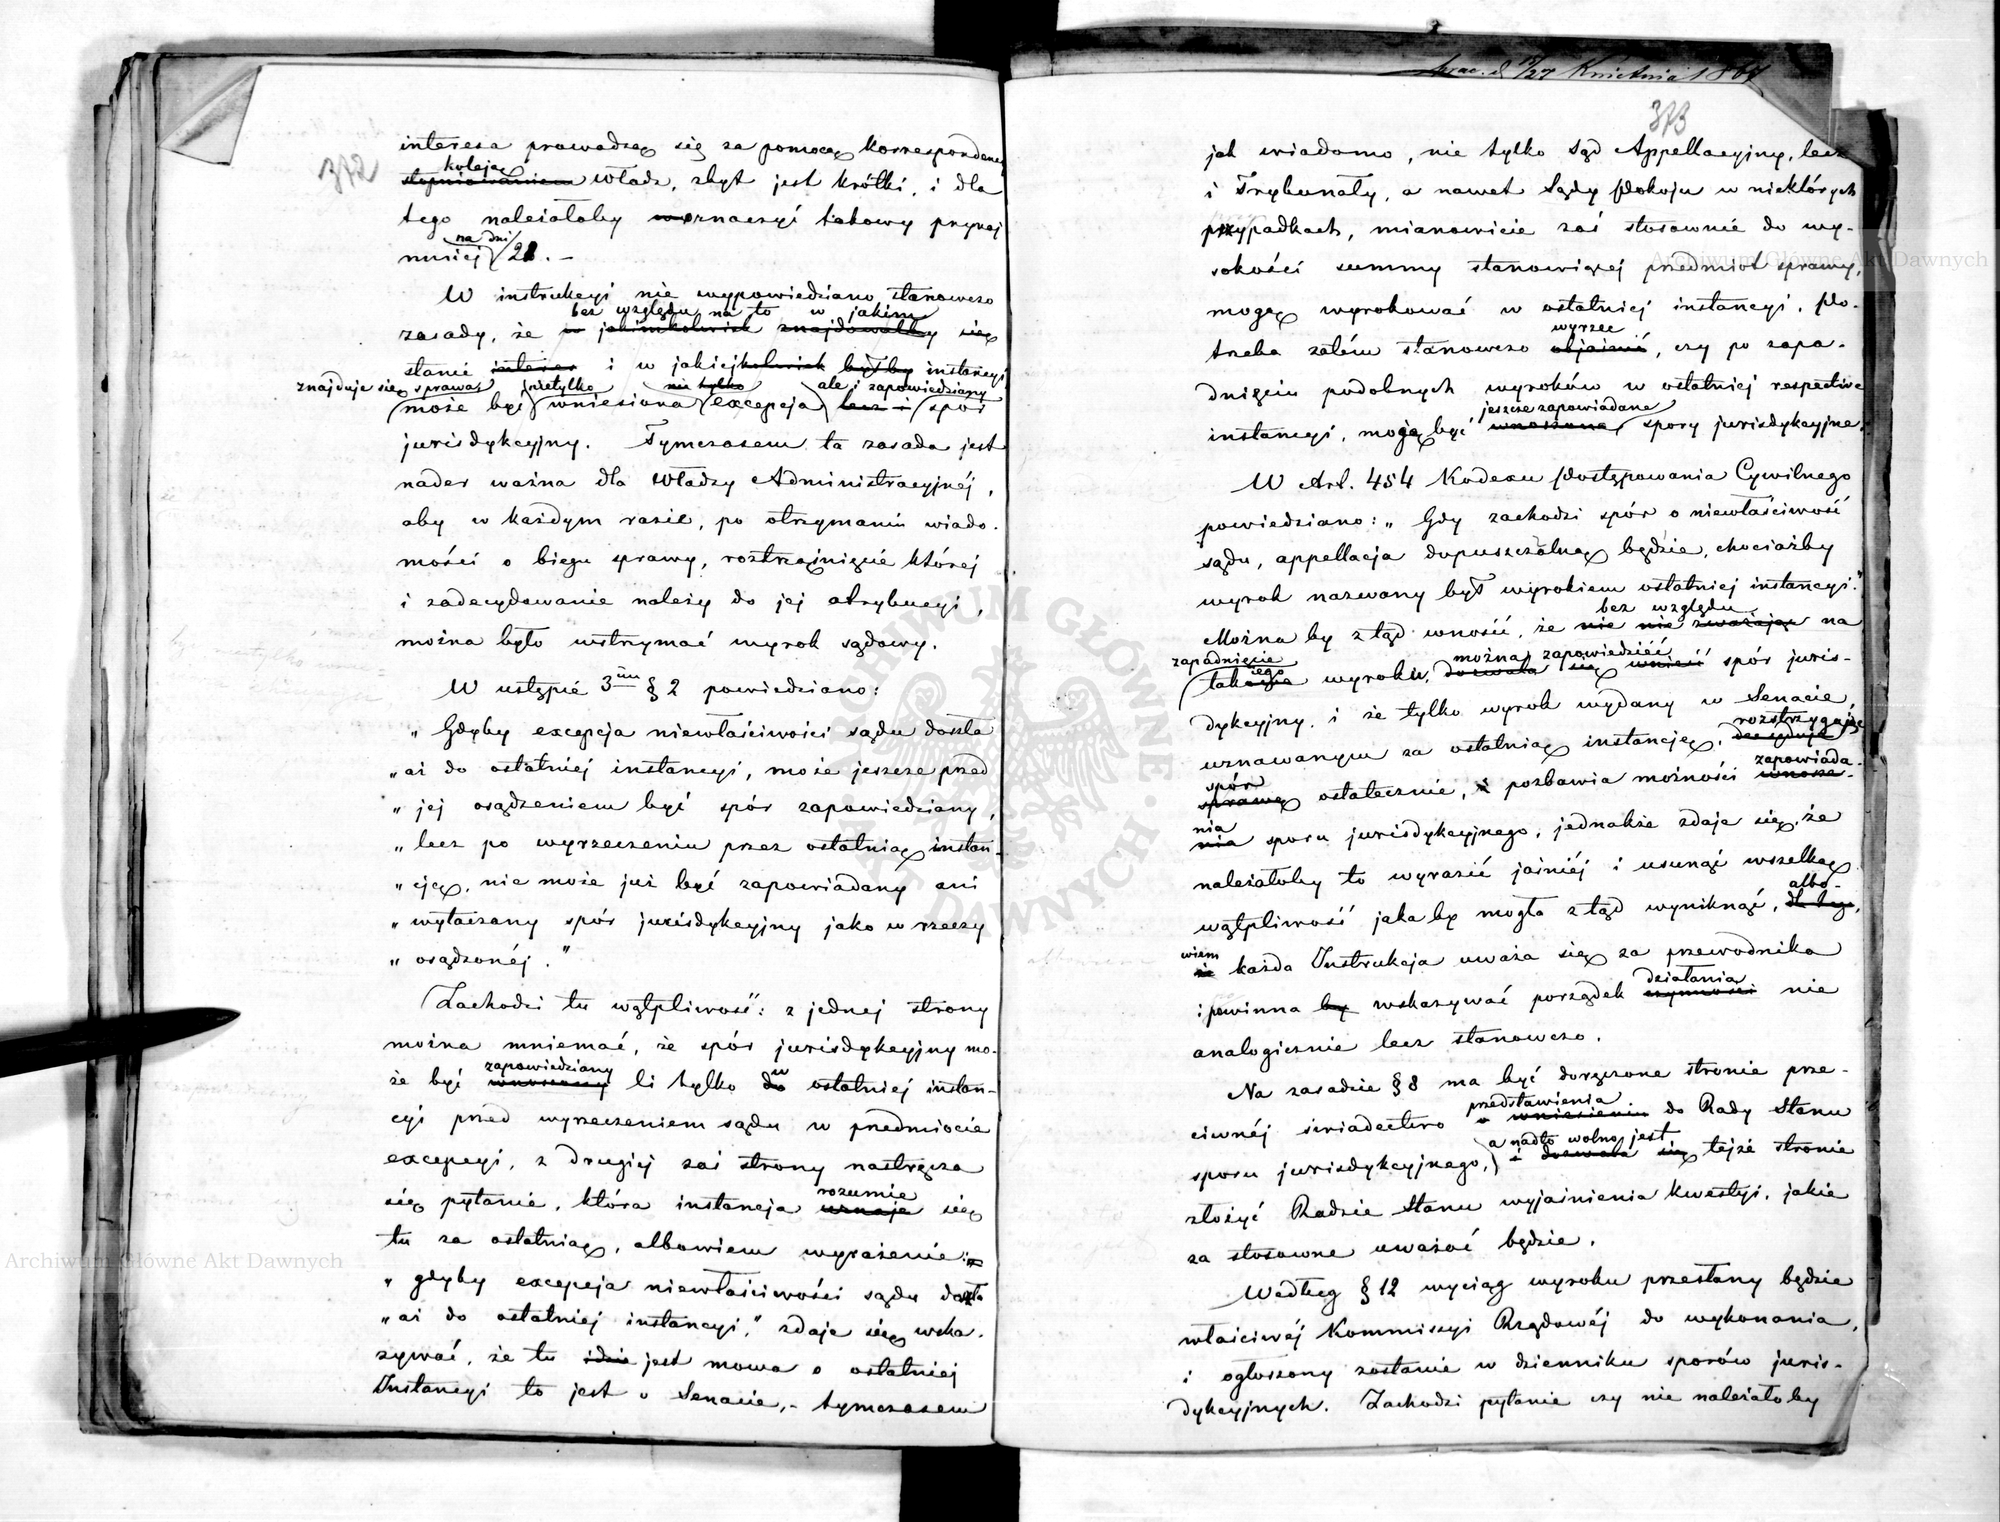 372
interesa prowadzą się za pomocą korrespondencyi
koleją
stopniowaniem władz, zbyt jest krótki, i dla
tego należałoby wyznaczyć takowy przynaj
na dni
mniej 21. –
W instrukcyi nie wypowiedziano stanowczo
bez względu na to w jakim
zasady, że w jakimkolwiek znajdowałby się
stanie interes i w jakiejkolwiek byłby instancyi
znajduje się sprawa nietylko nie tylko ale i zapowiedziany
może być wniesiona excepcja lecz i spór
jurisdykcyjny. Tymczasem ta zasada jest
nader ważna dla Władzy Administracyjnéj,
aby w każdym razie, po otrzymaniu wiado-
mości o biegu sprawy, roztrząśnięcie której
i zadecydowanie należy do jej atrybucyi,
można było wstrzymać wyrok sądowy.
W ustępie 3im § 2 powiedziano:
„Gdyby excepcja niewłaściwości sądu doszła
„aż do ostatniej instancyi, może jeszcze przed
„jej osądzeniem być spór zapowiedziany,
„lecz po wyrzeczeniu przez ostatnią instan-
„cję, nie może już być zapowiadany ani
„wytaczany spór jurisdykcyjny jako w rzeczy
„osądzonéj."
Zachodzi tu wątpliwość: z jednej strony
można mniemać, że spór jurisdykcyjny mo-
zapowiedziany w
że być wnoszony li tylko do ostatniej instan-
cyi przed wyrzeczeniem sądu w przedmiocie
excepcyi, z drugiej zaś strony nastręcza
rozumie
się pytanie, która instancja uznaje się
tu za ostatnią, albowiem wyrażenie:
„gdyby excepcja niewłaściwości sądu doszła
„aż do ostatniej instancyi," zdaje się wska-
zywać, że tu idzie jest mowa o ostatniej
Instancyi to jest o Senacie, – tymczasem
27 Kwietnia 1867
373
jak wiadomo, nie tylko Sąd Appellacyjny, lecz
i Trybunały, a nawet Sądy Pokoju w niektórych
przypadkach, mianowicie zaś stosownie do wy-
sokości summy stanowiącej przedmiot sprawy,
mogą wyrokować w ostatniej instancyi. Po-
wyrzec
trzeba zatém stanowczo objaśnić, czy po zapa-
dnięciu podobnych wyroków w ostatniej respective
jeszcze zapowiadane
instancyi, mogą być wnoszone spory jurisdykcyjne.
W Art. 454 Kodexu Postępowania Cywilnego
powiedziano: „Gdy zachodzi spór o niewłaściwość
sądu, appellacja dopuszczalną będzie, chociażby
wyrok nazwany był wyrokiem ostatniej instancyi."
bez względu
Można by ztąd wnosić, że nie nie zważając na
zapadnięcie iego można zapowiedzieć
takowego wyroku, dozwala się wnieść spór juris-
dykcyjny, i że tylko wyrok wydany w Senacie
rozstrzygając
uznawanym za ostatnią instancję, decyduje
spór zapowiada-
sprawę ostatecznie, i pozbawia możności wnosze-
nia
nia sporu jurisdykcyjnego, jednakże zdaje się, że
należałoby to wyrazić jaśniéj i usunąć wszelką
albo-
wątpliwość jaka by mogła ztąd wyniknąć,
wiem
każda Instrukcja uważa się za przewodnika
działania
i powinna by wskazywać porządek czynności nie
analogicznie lecz stanowczo.
Na zasadzie § 8 ma być doręczone stronie prze-
przedstawienia
ciwnéj świadectwo o wniesieniu do Rady Stanu
a nadto wolno jest
sporu jurisdykcyjnego, i dozwala się tejże stronie
złożyć Radzie Stanu wyjaśnienia kwestyi, jakie
za stosowne uważać będzie.
Według § 12 wyciąg wyroku przesłany będzie
właściwéj Kommissyi Rządowéj do wykonania,
i ogłoszony zostanie w dzienniku sporów juris-
dykcyjnych. Zachodzi pytanie czy nie należałoby
Archiwum Główne Akt Dawnych
Archiwum Główne Akt Dawnych
ARCHIWUM GŁÓWNE AKT DAWNYCH